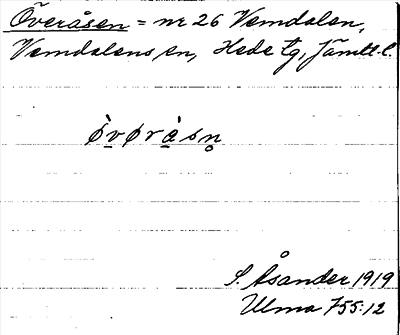 Överåsen = nr 26 Vemdalen,
Vemdalens sn, Hede tg, Jämtl. l.
ø̀v̲ørås̲n̥
S. Åsander 1919
Ulma 755:12